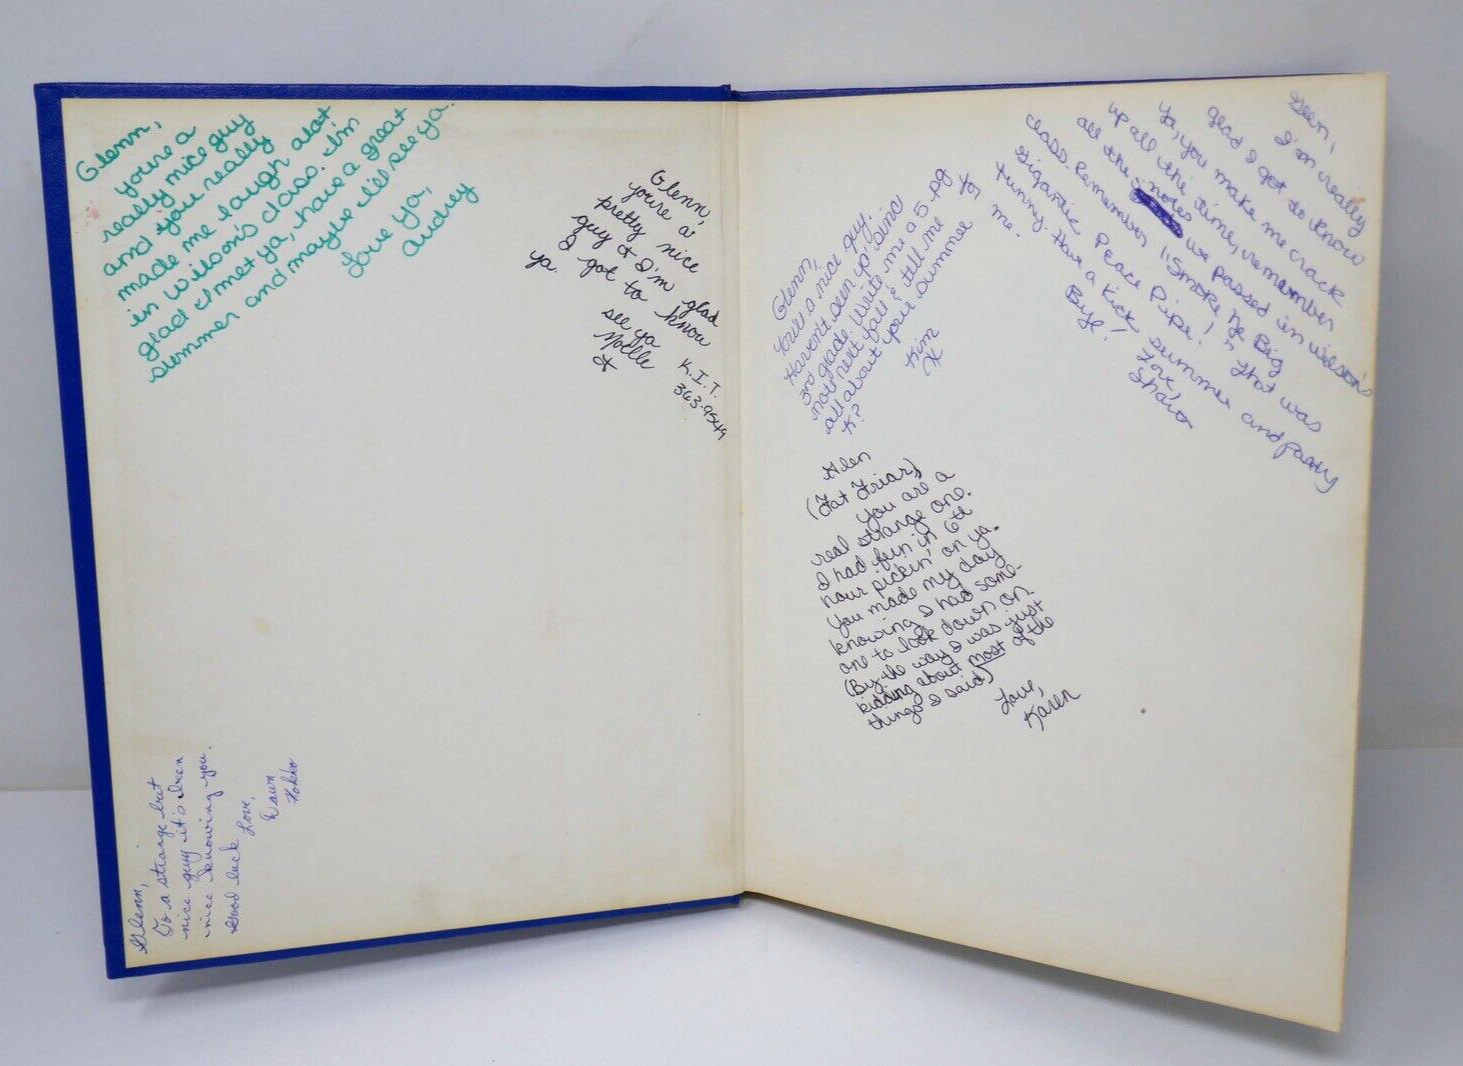 Glenn,
you're a
really nice guy
and you really
made me laugh alot
in Wilson's class. I'm
glad I met ya, have a great
summer and maybe I'll see ya.
Love ya,
Audrey
Glenn,
you're a
pretty nice
guy & I'm glad
I got to know
ya.
see ya
Noelle
K.I.T.
363-9549
Glenn,
To a strange but
nice guy it's been
nice knowing you.
Good luck
Love,
Dawn
Glenn,
You're a nice guy.
Haven't seen ya since
3rd grade. Write me a 5 pg
note next fall & tell me
all about your summer
K?
Kim
Glen,
I'm really
glad I got to know
ya, you make me crack
up all the time, remember
all the notes we passed in Wilson's
class. Remember "Smoke ye Big
Gigantic Peace Pipe!" That was
funny. Have a kick summer and party
for me.
Bye!
Love,
Glen
(Fat Friar),
You are a
real strange one.
I had fun in 6th
hour pickin' on ya.
You made my day
knowing I had some-
one to look down on.
(By the way I was just
kidding about most of the
things I said)
Love,
Karen